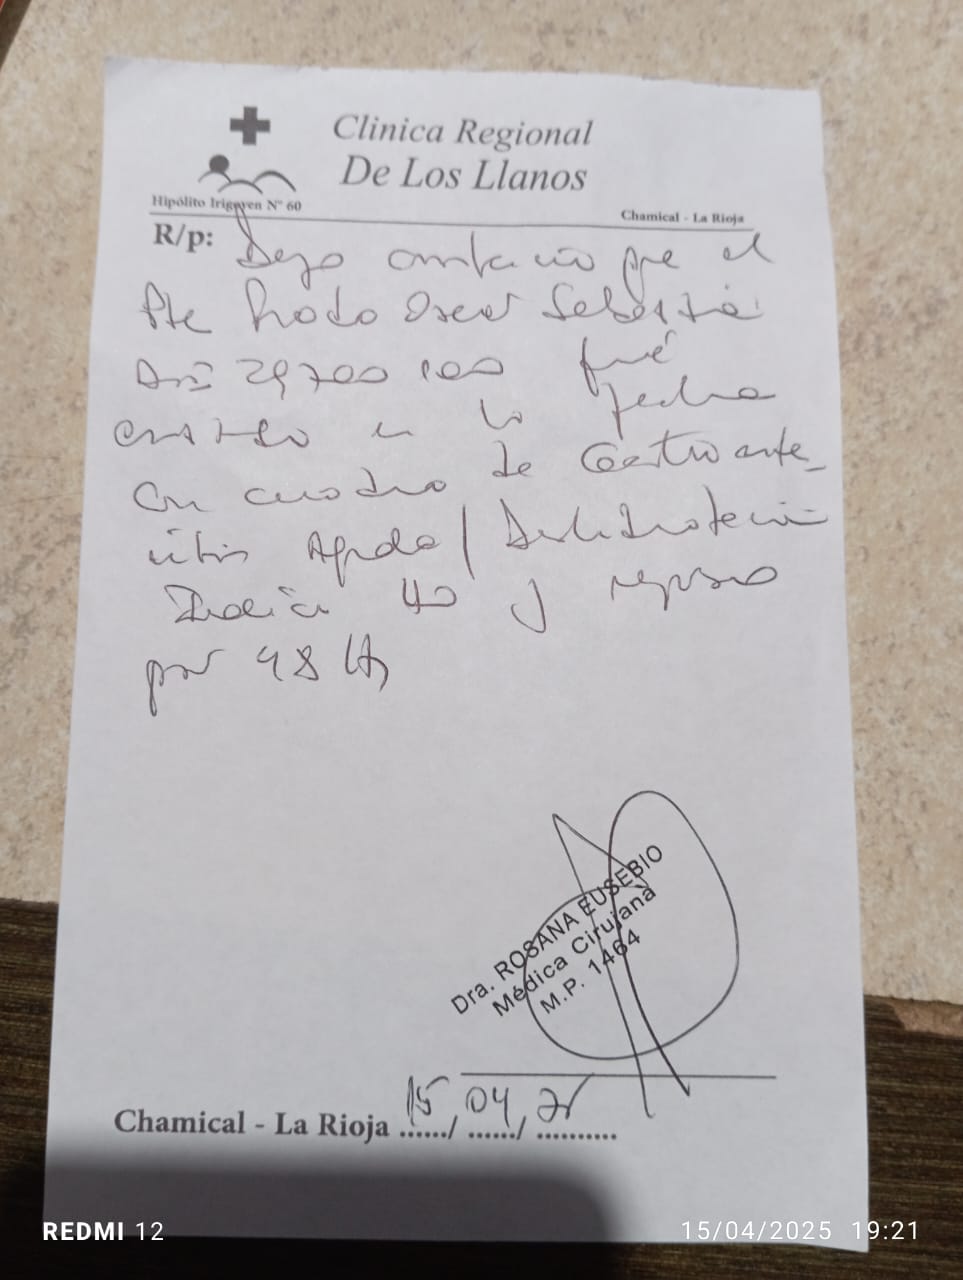 Clinica Regional
De Los Llanos
Hipólito Irigoyen Nº 60
Chamical - La Rioja
R/p: Dejo constancia que el
Pte Prado Oscar Sebastián
DNI 29700 100 fué
en la fecha
con cuadro de Gastroente_
ritis Aguda / Deshidratación
Indico y reposo
por 48 Hs
Dra. ROSANA EUSEBIO
Médica Cirujana
M.P. 1464
Chamical - La Rioja 15/04/25
REDMI 12
15/04/2025 19:21